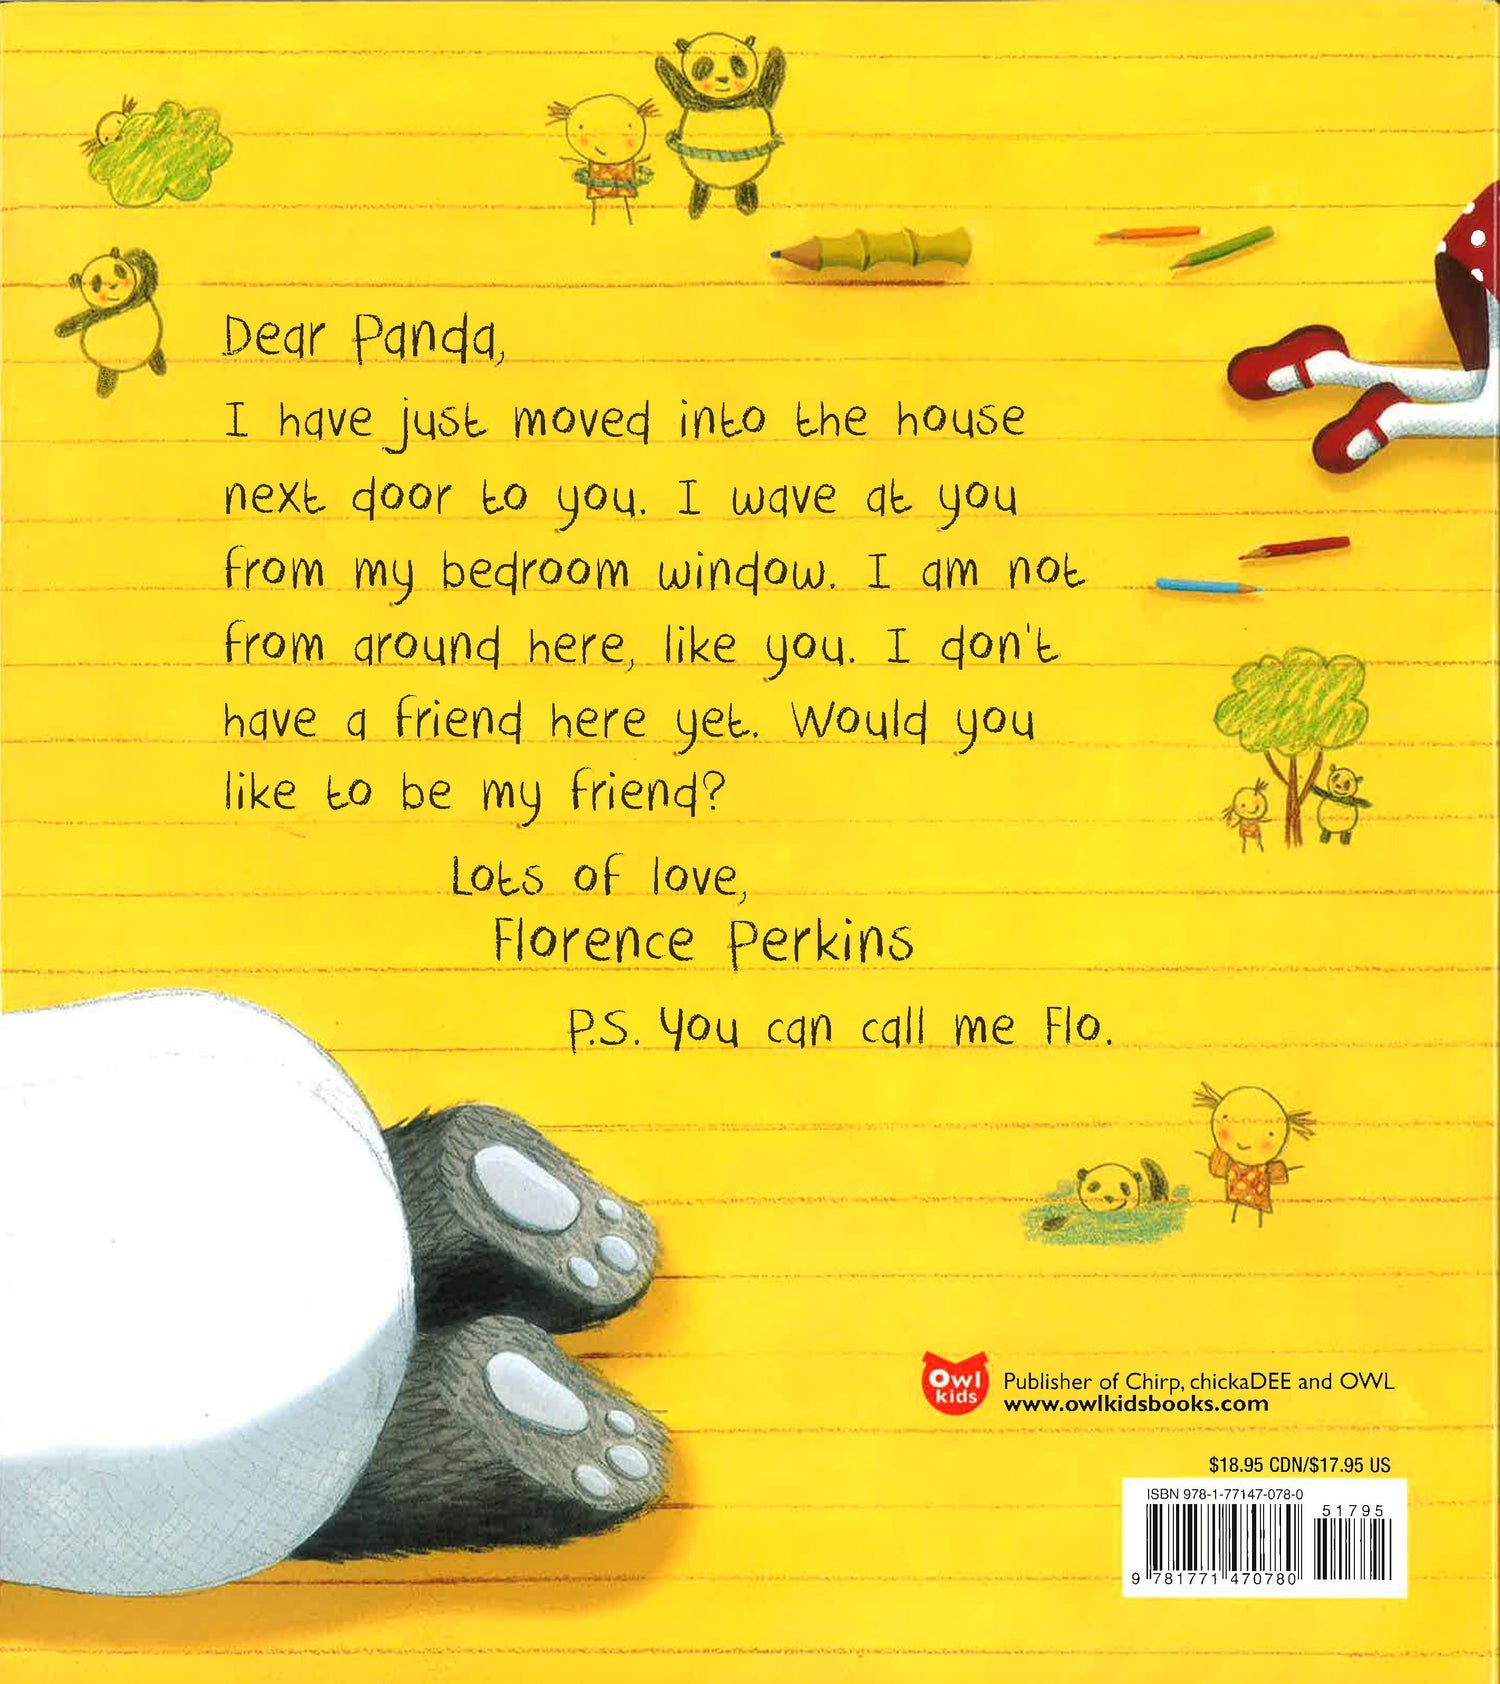 Dear Panda,
I have just moved into the house
next door to you. I wave at you
from my bedroom window. I am not
from around here, like you. I don't
have a friend here yet. Would you
like to be my friend?
Lots of love,
Florence Perkins
P.S. You can call me Flo.
Owl
kids
Publisher of Chirp, chickaDEE and OWL
www.owlkidsbooks.com
$18.95 CDN/$17.95 US
ISBN 978-1-77147-078-0
51795
9 781771 470780